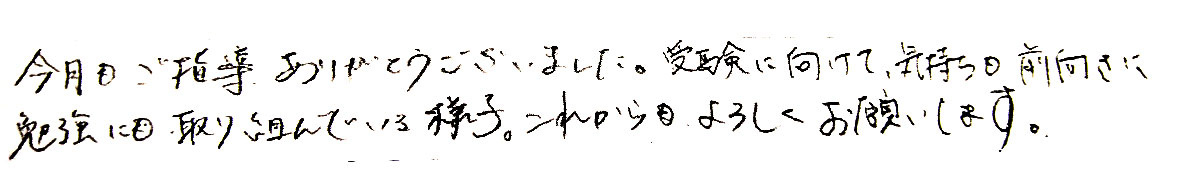 今月もご指導ありがとうございました。受験に向けて、気持ちも前向きに
勉強にも取り組んでいる様子。これからもよろしくお願いします。